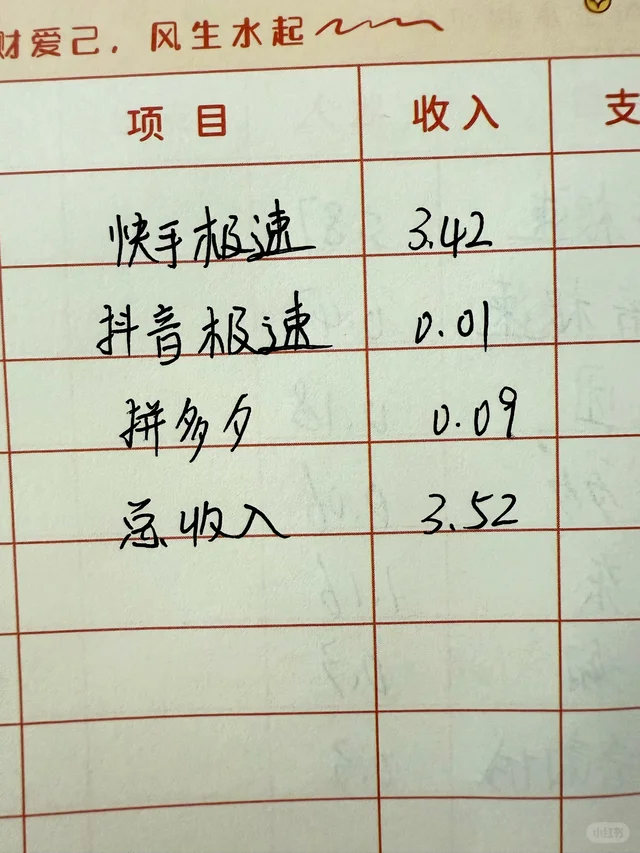 财爱己，风生水起
项目 收入 支
快手极速 3.42
抖音极速 0.01
拼多夕 0.09
总收入 3.52
小红书